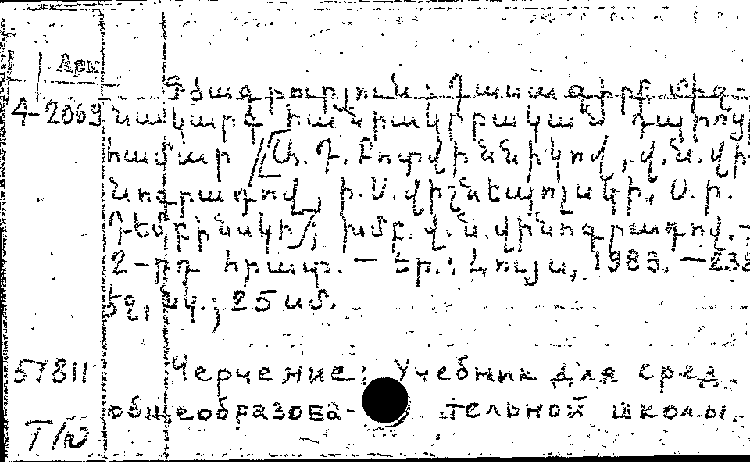 Арм
Գծագրություն: Դասագիրք միջ-
4-2069 նակարգ հանրակրթական դպրոցի
համար /[Ա. Դ. Բոտվիննիկով, վ. Ն. վի-
նոգրադով, Ի. Ս. վիշնեպոլսկի, Ս. Ի.
Դեմբինսկի]; խմբ. վ. Ն. վինոգրադով. -
2-րդ հրատ. - Եր.: Լույս, 1983. - 238
էջ, նկ.; 25 սմ.
57811 Черчение: Учебник для сред.
общеобразова- тельной школы.
Т/ю